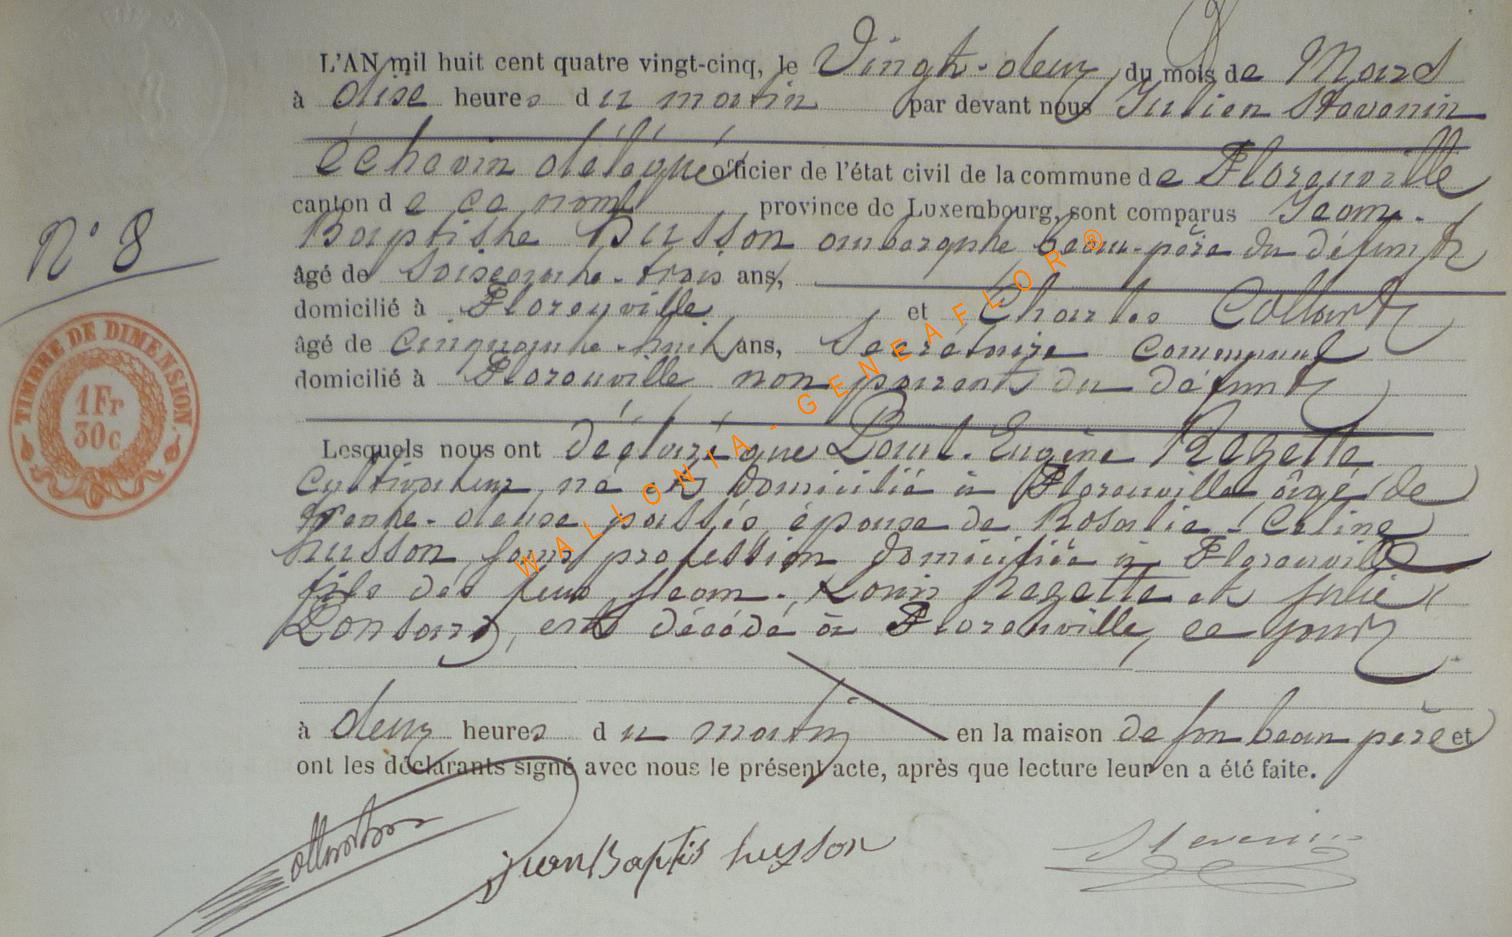 L'AN mil huit cent quatre vingt-cinq, le Vingt-deux du mois de Mars
à dise heures du matin par devant nous Julien Stevenin
échevin délégué officier de l'état civil de la commune de Florenville
canton de ce nom province de Luxembourg, sont comparus Jean-
N° 8
Baptiste Husson aubergiste beau-père du défunt
âgé de soiscante-trois ans,
domicilié à Florenville et Charles Collart
âgé de cinquante-huit ans, Secrétaire communal
domicilié à Florenville non parent du défunt
TIMBRE DE DIMENSION.
1Fr
30c
Lesquels nous ont déclaré que Paul-Eugène Rezette
cultivateur, né et domicilié à Florenville âgé de
trente-deuse passés, épouse de Rosalie-Celine
husson sans profession domiciliée à Florenville
fils des feus Jean-Louis Rezette et Julie
Ponsard, est décédé à Florenville, ce jour
à deux heures du matin en la maison de son beau père et
ont les déclarants signé avec nous le présent acte, après que lecture leur en a été faite.
jean Baptis husson
Stevenin
WALLONIA-GENEAFLOR®